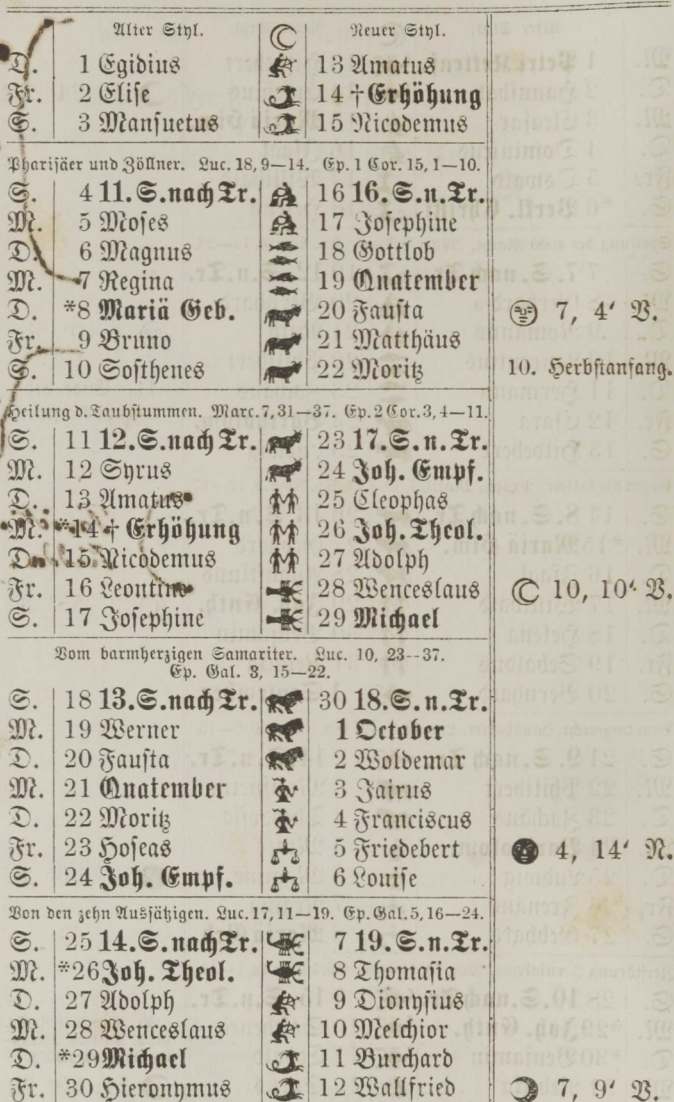 Alter Styl. Neuer Styl.
D. 1 Egidius 13 Amatus
Fr. 2 Elise 14 † Erhöhung
S. 3 Mansuetus 15 Nicodemus
Pharisäer und Zöllner. Luc. 18, 9—14. Ep. 1 Cor. 15, 1—10.
S. 4 11. S. nach Tr. 16 16. S. n. Tr.
M. 5 Moses 17 Josephine
D. 6 Magnus 18 Gottlob
M. 7 Regina 19 Quatember
D. *8 Mariä Geb. 20 Fausta 7, 4‘ V.
Fr. 9 Bruno 21 Matthäus
S. 10 Sosthenes 22 Moritz 10. Herbstanfang.
Heilung d. Taubstummen. Marc. 7, 31—37. Ep. 2 Cor. 3, 4—11.
S. 11 12. S. nach Tr. 23 17. S. n. Tr.
M. 12 Syrus 24 Joh. Empf.
D. 13 Amatus 25 Cleophas
M. *14 † Erhöhung 26 Joh. Theol.
D. 15 Nicodemus 27 Adolph
Fr. 16 Leontine 28 Wenceslaus 10, 10‘ V.
S. 17 Josephine 29 Michael
Vom barmherzigen Samariter. Luc. 10, 23--37.
Ep. Gal. 3, 15—22.
S. 18 13. S. nach Tr. 30 18. S. n. Tr.
M. 19 Werner 1 October
D. 20 Fausta 2 Woldemar
M. 21 Quatember 3 Jairus
D. 22 Moritz 4 Franciscus
Fr. 23 Hoseas 5 Friedebert 4, 14‘ N.
S. 24 Joh. Empf. 6 Louise
Von den zehn Aussätzigen. Luc. 17, 11—19. Ep. Gal. 5, 16—24.
S. 25 14. S. nach Tr. 7 19. S. n. Tr.
M. *26 Joh. Theol. 8 Thomasia
D. 27 Adolph 9 Dionysius
M. 28 Wenceslaus 10 Melchior
D. *29 Michael 11 Burchard
Fr. 30 Hieronymus 12 Wallfried 7, 9‘ V.